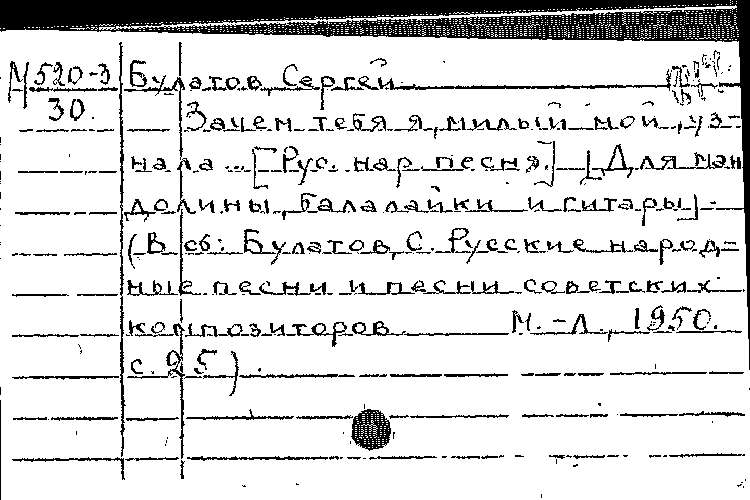 М 520-3 Булатов, Сергей.
30. Зачем тебя я, милый мой, уз=
нала... [Рус. нар. песня.] [Для ман
долины, балалайки и гитары].
(В сб: Булатов, С. Русские народ=
ные песни и песни советских
композиторов М.-Л., 1950.
с. 25).